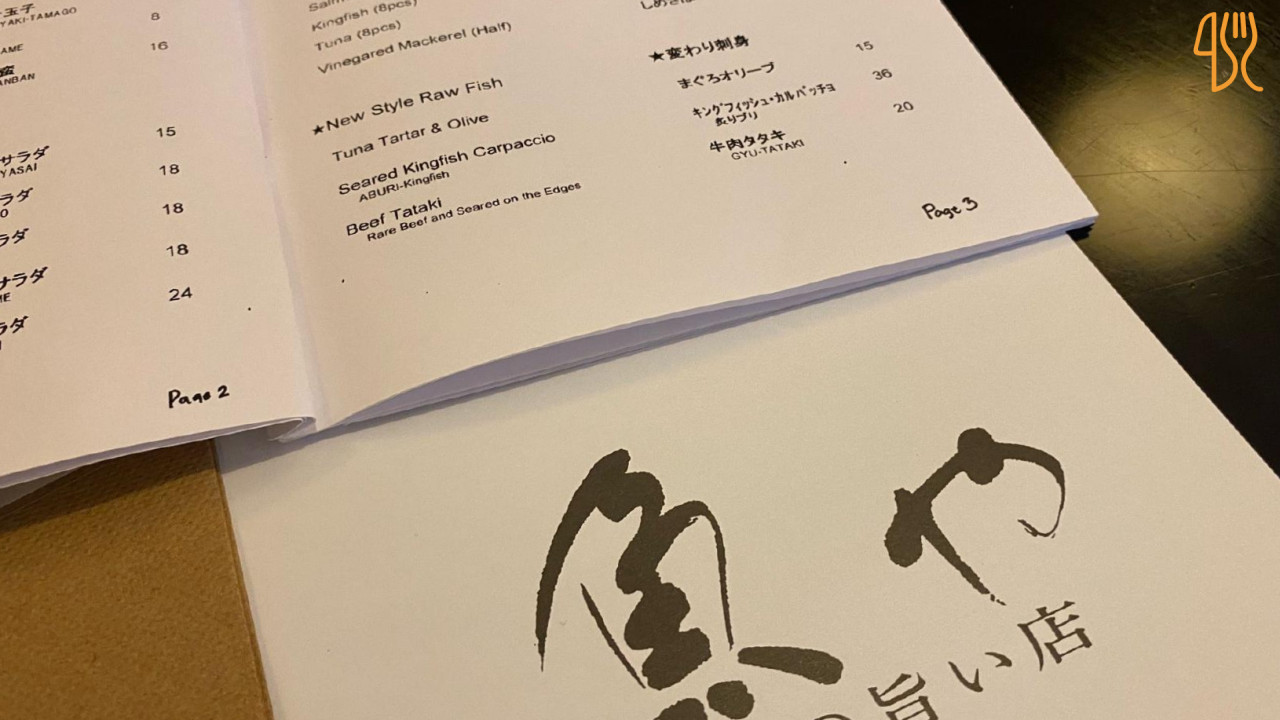 玉子
YAKI-TAMAGO
8
AME
16
ANBAN
15
サラダ
YASAI
18
ラダ
O
18
ラダ
18
サラダ
ME
24
ラダ
Page 2
Kingfish (8pcs)
Tuna (8pcs)
Vinegared Mackerel (Half)
★New Style Raw Fish
Tuna Tartar & Olive
Seared Kingfish Carpaccio
ABURI-Kingfish
Beef Tataki
Rare Beef and Seared on the Edges
★変わり刺身
まぐろオリーブ 15
キングフィッシュ・カルパッチョ 36
炙りブリ
牛肉タタキ 20
GYU-TATAKI
Page 3
魚や
旨い店